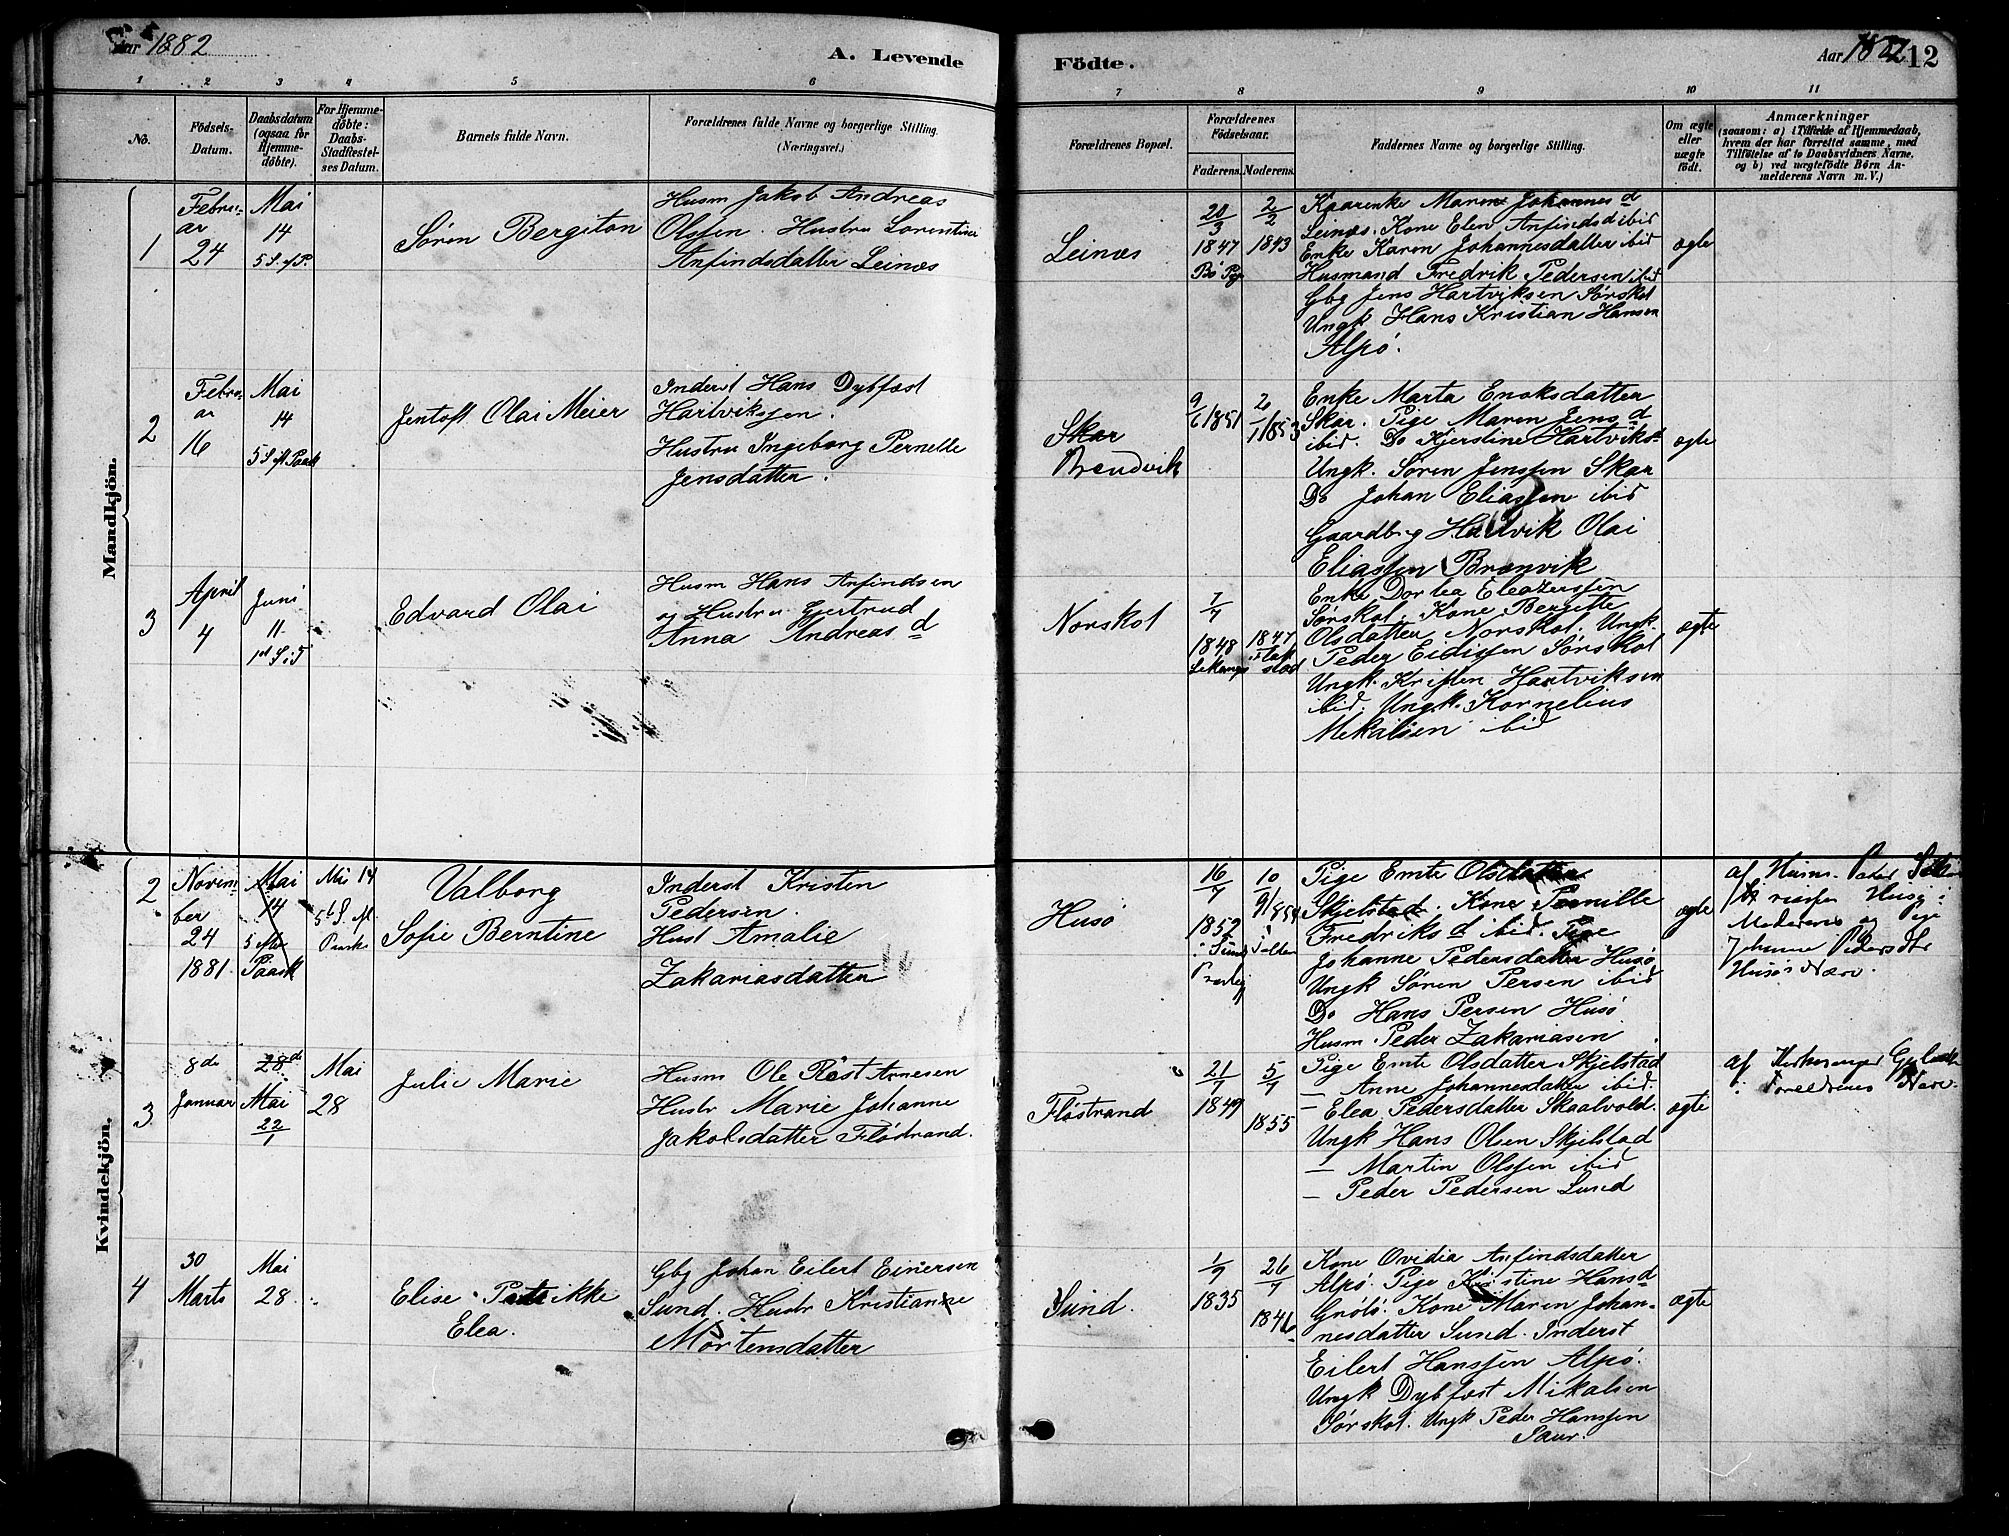 Aar 1882
A. Levende
Födte.
Aar 1882
12
1 2 3 4 5 6 7 8 9 10 11
No.
Födsels-
Datum.
Daabsdatum
(ogsaa for
Hjemme-
döbte).
For Hjemme-
döbte:
Daabs-
Stadfæstel-
ses Datum.
Barnets fulde Navn.
Forældrenes fulde Navne og borgerlige Stilling.
(Næringsvei.)
Forældrenes Bopæl.
Forældrenes
Födselsaar.
Faderens. Moderens.
Faddernes Navne og borgerlige Stilling.
Om ægte
eller
uægte
födt.
Anmærkninger
(saasom: a) i Tilfælde af Hjemmedaab,
hvem der har forrettet samme, med
Tilföielse af to Daabsvidners Navne,
og b) ved uægtefödte Börn An-
melderens Navn m. V.)
Mandkjön.
1
Febru-
ar
24
Mai
14
5 S. e/P.
Søren Bergiton
Husm Jakob Andreas
Olsen. Hustru Lorentine
Anfindsdatter Leinæs
Leinæs
20/3
1847
Bø Pg
2/2
1843
Kaarenke Maren Johannes d
Leinæs. Kone Elen Anfindsd ibid
Enke Karen Johannesdatter ibid
Husmand Fredrik Pedersen ibid
Gbg Jens Hartviksen Sørskot
Ungk Hans Kristian Hansen
Alpø.
ægte
2
Febru-
ar
16
Mai
14
5 S. ef. Paask
Jentoft Olai Meier
Inderst Hans Dybfæst
Hartviksen.
Hustru Ingeborg Pernelle
Jensdatter.
Skar
Brendvik
9/6 1851
2/1 1853
Enke Marta Enoksdatter
Skar. Pige Maren Jens d
ibid. Do Kjerstine Hartviksd
Ungk. Søren Jenssen Skar
Do Johan Eliassen ibid
Gaardbrg Hartvik Olai
Eliassen Brænvik
ægte
3
April
4
Juni
11
1st S. i T
Edvard Olai
Husm Hans Anfindsen
og Hustru Gjertrud
Anna Andreas d
Norskot
7/7
1848
1847
Flak
stad
Enke Dortea Eleazerssen
Sørskot. Kone Bergitte
Olsdatter Norskot. Ungk.
Peder Eidissen Sørskot
Ungk. Kristen Hartviksen
ibid. Ungk. Kornelius
Mekalsen ibid
ægte
Kvindekjön.
2
Novem-
ber
24
1881
Mai
14
5 efter
Paask
Mai 14
5te S. ef.
Paaske
Valborg
Sofie Berntine
Inderst Kristen
Pedersen.
Hust Amalie
Zakariasdatter
Husø
16/7
1852
10/9 1854
Pige Emte Olsdatter
Skjelstad. Kone Pernille
Fredriks d ibid. Pige
Johanne Pedersdatter Husø
Ungk Søren Persen ibid
Do Hans Persen Husø
Husm Peder Zakariasen.
ægte
af Husm. Peder
Husø
Moderens og Pige
Johanne Pedersdtr
Husøs Nærv.
3
8de
Januar
28de
Mai
22/1
Mai
28
Julie Marie
Husm Ole Røst Arnesen
Hustr Marie Johanne
Jakobsdatter Fløstrand.
Fløstrand
21/7
1849
5/7
1855
Pige Emte Olsdatter Skjelstad
— Anne Johannesdatter ibid.
— Elea Pedersdatter Skaalvold.
Ungk Hans Olsen Skjelstad
— Martin Olssen ibid
— Peder Pedersen Sund
ægte
af Kirkesanger
Foreldrenes Nærv.
4
30
Marts
Mai
28
Elise Patrikke
Elea.
Gbg Johan Eilert Einersen
Sund. Hustr Kristianne
Mortensdatter
Sund.
1/9
1835
26/7
1846
Kone Ovidia Anfindsdatter
Alpø. Pige Kristine Hansd
Grøtø. Kone Maren Johan-
nesdatter Sund. Inderst
Eilert Hanssen Alpø.
Ungk Dybfæst Mikalsen
Sørskot. Ungk Peder Hanssen
Saur.
ægte